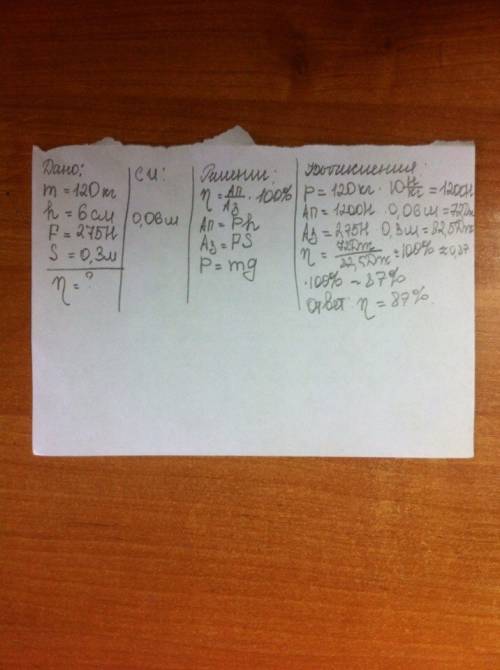 Дано:
m = 120 кг
h = 6 см
F = 275Н
S = 0,3м
η = ?
СИ:
0,06м
Решение:
η = Aп/Aз · 100%
Aп = Ph
Aз = FS
P = mg
Вычисления:
P = 120кг · 10 Н/кг = 1200Н
Aп = 1200Н · 0,06м = 72Дж
Aз = 275Н · 0,3м = 82,5Дж
η = 72Дж/82,5Дж = 100% ≈ 0,87
·100% = 87%
Ответ: η = 87%.